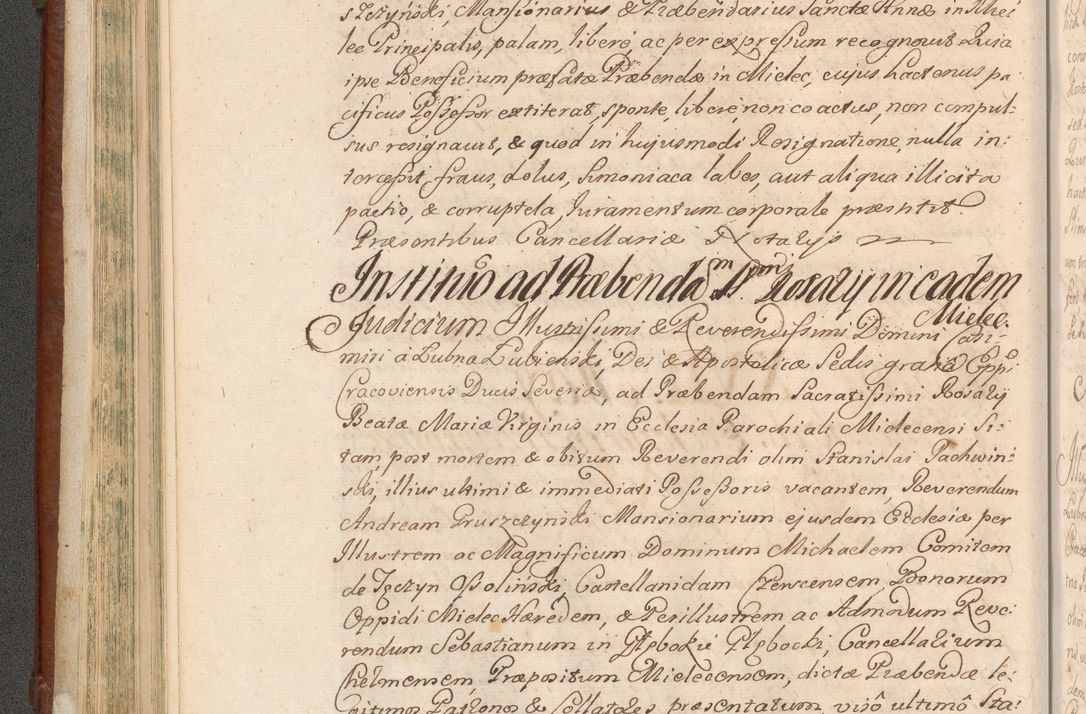 szczyński Mansionarius & Præbendarius Sanctæ Annæ in Mie=
lec Principalis, palam, liberè, ac per expressum recognovit Quia
ipse Beneficium præfatæ Præbendæ in Mielec, cujus hactenus pa
cificus Possessor extiterat, sponte, liberè, non coactus, non compul=
sus resignavit, & quod in hujusmodi Resignatione, nulla in=
tercessit fraus, dolus, Simoniaca labes, aut aliqua illicita
pactio, & corruptela, Iuramentum corporale præstitit.
Præsentibus Cancellariæ Notarijs
Institutio ad Præbendã Smi Rosarij in eadem
Mielec.
Judicium Illustrissimi & Reverendissimi Domini Casi=
miri à Łubna Łubieński, Dei & Apostolicæ Sedis gratiâ Eppi
Cracoviensis Ducis Severiæ, ad Præbendam Sacratissimi Rosarij
Beatæ Mariæ Virginis in Ecclesia Parochiali Mielecensi Si=
tam post mortem & obitum Reverendi olim Stanislai Pachwin=
ski, illius ultimi & immediati Possessoris vacantem, Reverendum
Andream Gruszczyński Mansionarium ejusdem Ecclesiæ per
Illustrem ac Magnificum Dominum Michaelem Comitem
de Tęczyn Ossoliński, Castellanidam Czerscensem Bonorum
Oppidi Mielec Hæredem, & Perillustrem ac Admodum Reve=
rendum Sebastianum in Głębokie Głębocki, Cancellarium
Chelmensem, Præpositum Mielecensem, dictæ Præbendæ le=
gitimos Patronos & Collatores præsentatum, visô ultimô Sta=